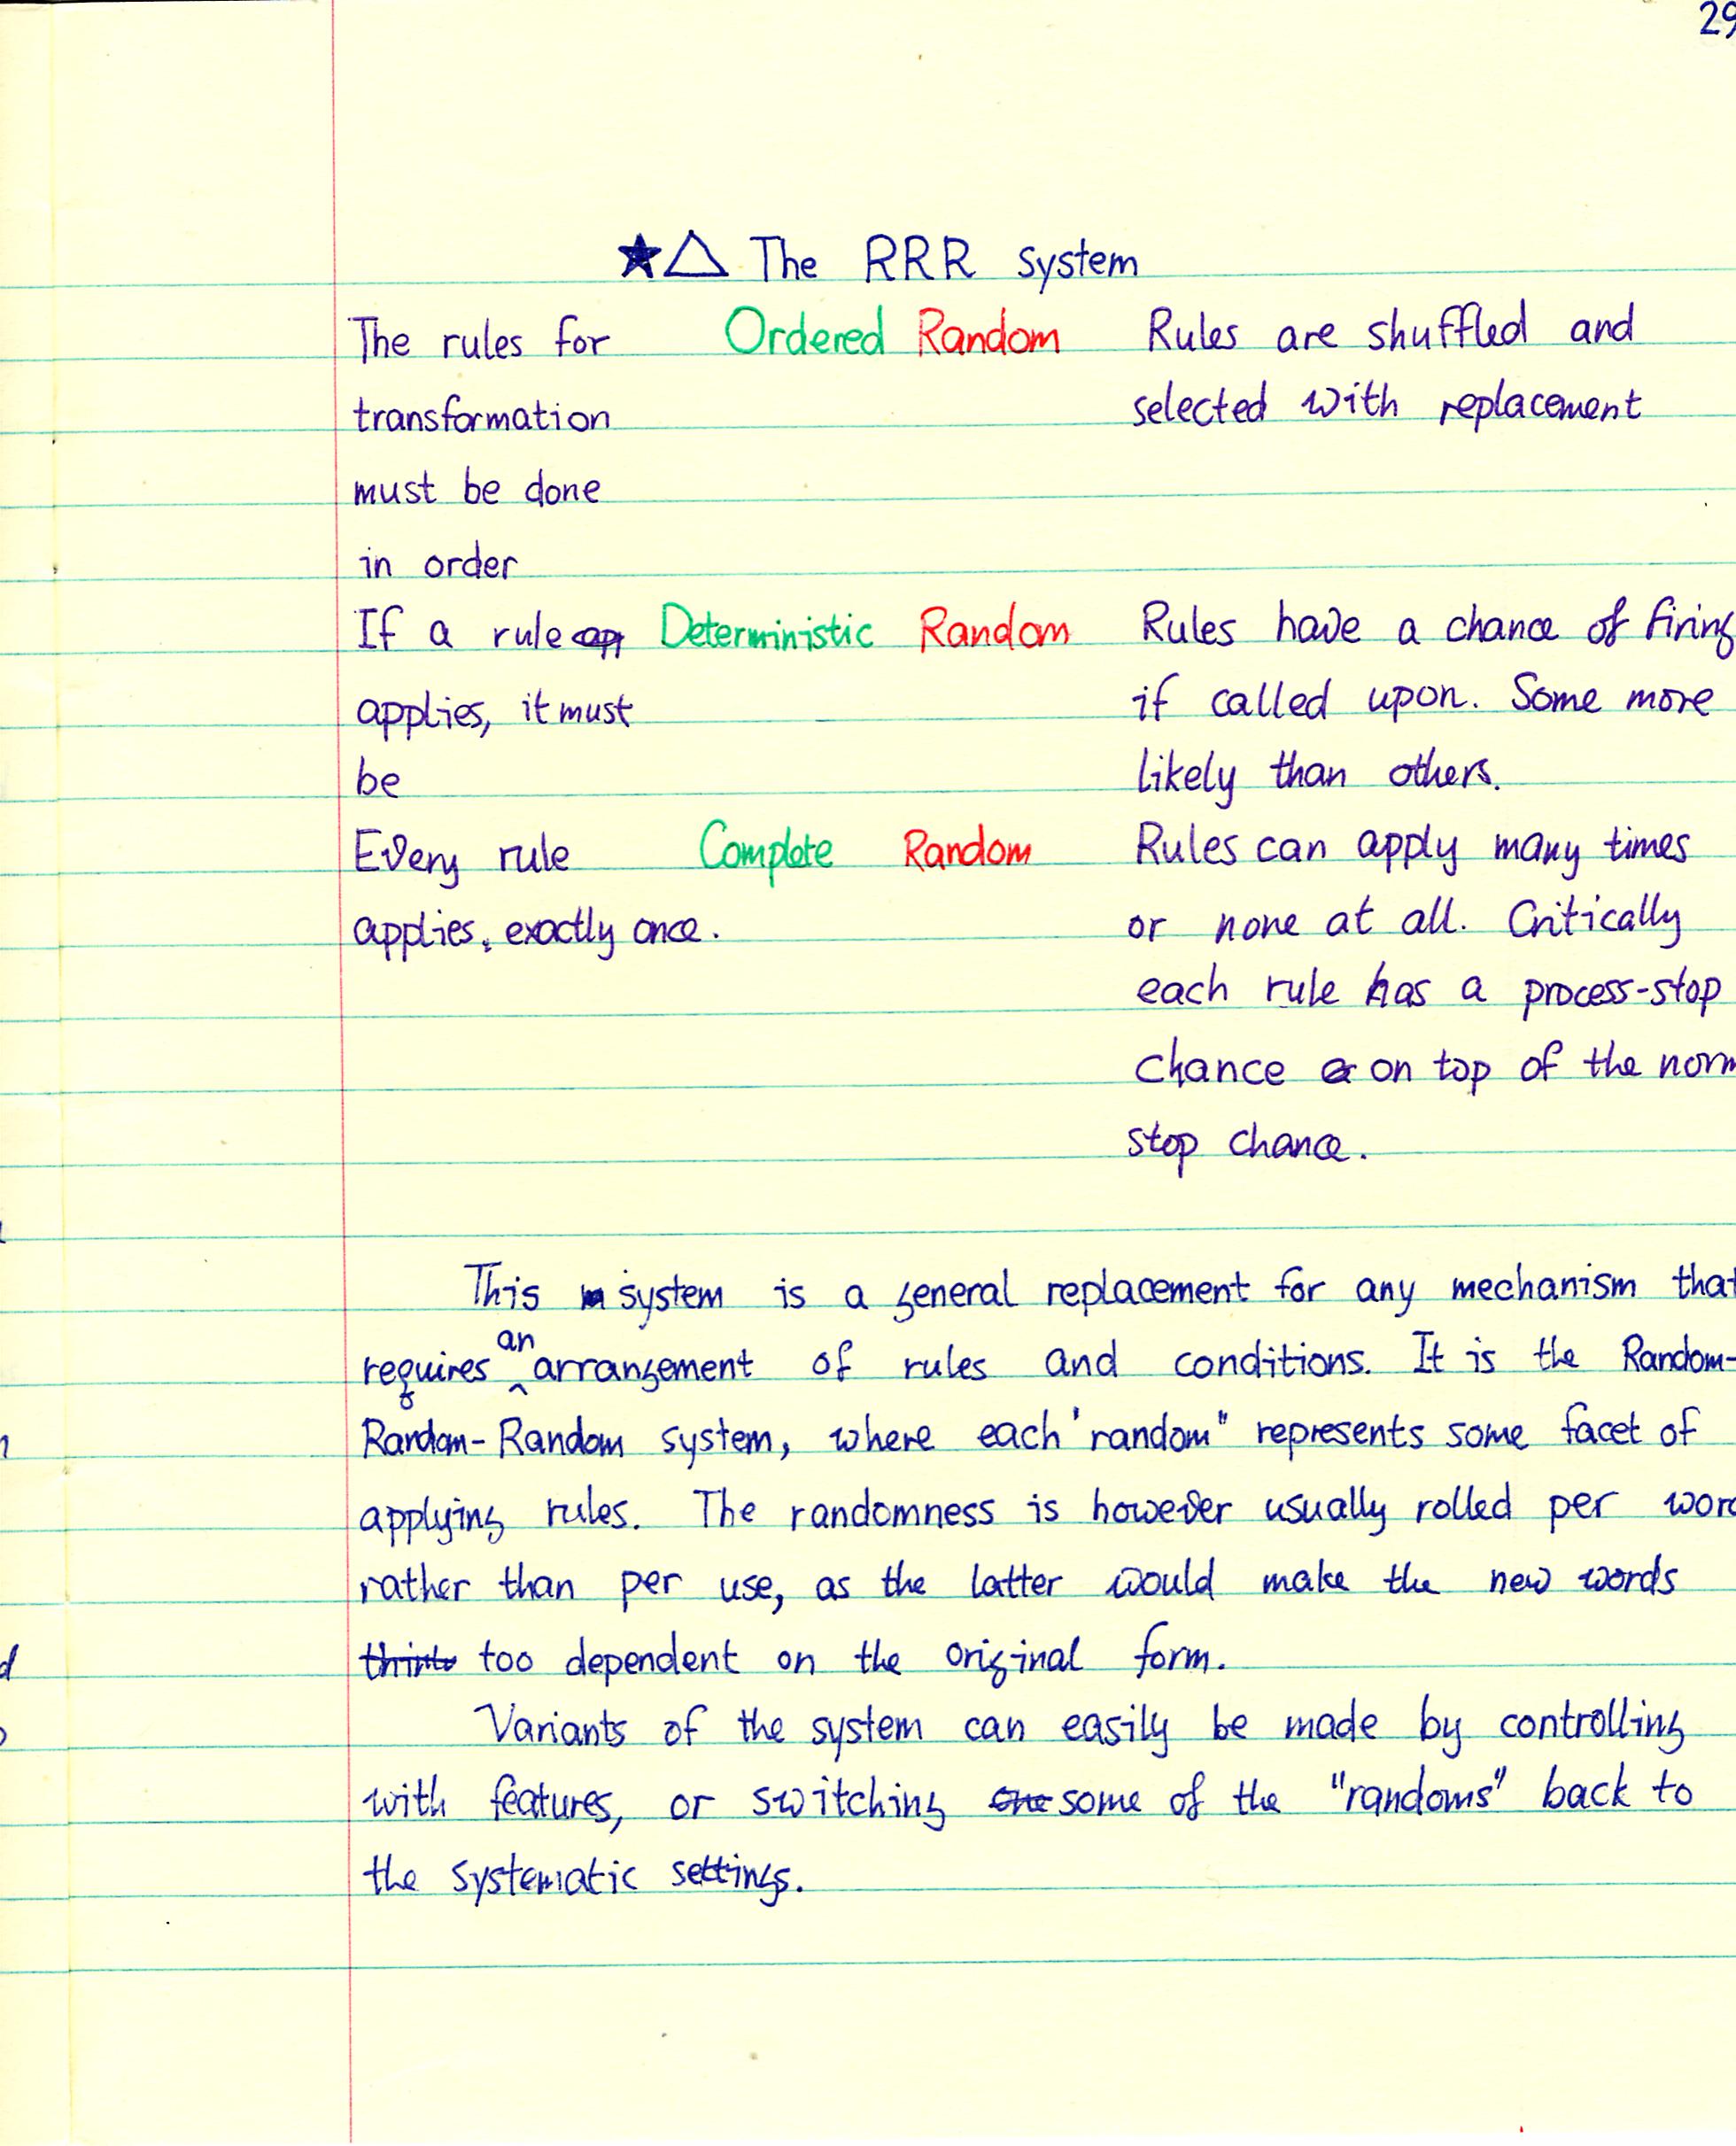 29
★△ The RRR system
The rules for Ordered Random Rules are shuffled and
transformation selected with replacement
must be done
in order
If a rule Deterministic Random Rules have a chance of firing
applies, it must if called upon. Some more
be likely than others.
Every rule Complete Random Rules can apply many times
applies, exactly once. or none at all. Critically
each rule has a process-stop
chance on top of the norm
stop chance.
This system is a general replacement for any mechanism that
requires an arrangement of rules and conditions. It is the Random-
Random-Random system, where each "random" represents some facet of
applying rules. The randomness is however usually rolled per word
rather than per use, as the latter would make the new words
too dependent on the original form.
Variants of the system can easily be made by controlling
with features, or switching some of the "randoms" back to
the systematic settings.